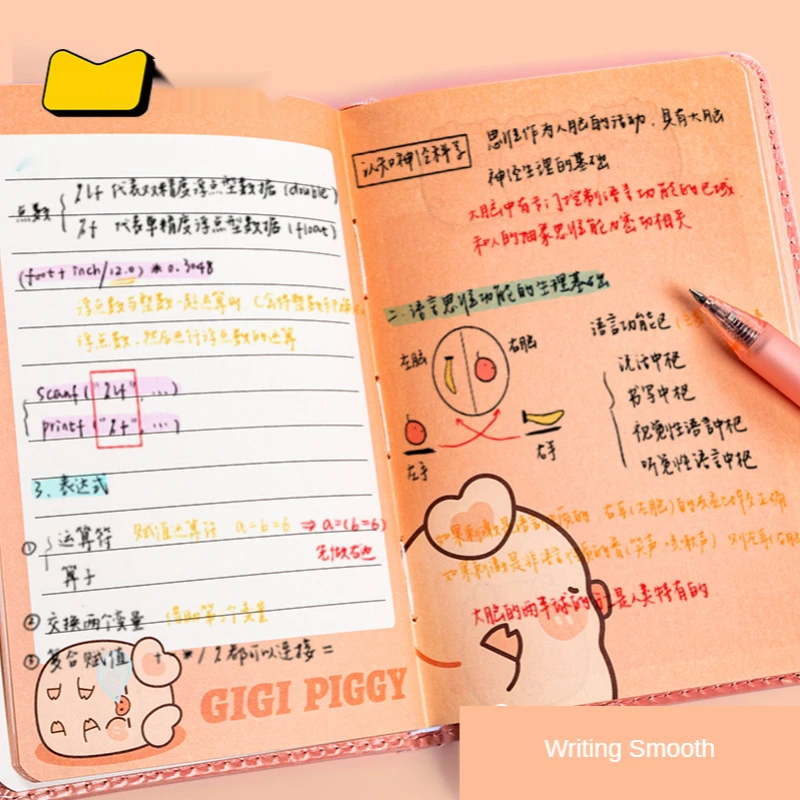 点数
lf 代表双精度浮点型数据 (double)
f 代表单精度浮点型数据 (float)
(foot + inch/12.0) * 0.3048
浮点数
浮点数,然后进行浮点数的运算
scanf("lf", ...)
printf("lf", ...)
3. 表达式
① 运算符 赋值运算符 a=b=6 ⇒ a=(b=6)
先做右边
算子
② 交换两个变量 借助第三个变量
③ 复合赋值 + * / 都可以连接 =
GIGI PIGGY
认知神经科学
思维作为人脑的活动,具有大脑
神经生理的基础
大脑中有专门控制语言功能的区域
和人的抽象思维能力密切相关
二、语言思维功能的生理基础
左脑
右脑
左手
右手
语言功能区
说话中枢
书写中枢
视觉性语言中枢
听觉性语言中枢
如果刺激是语言性质的 右耳(左脑)的
如果刺激是非语言性质的音(笑声
大脑的两半球的 是人类特有的
Writing Smooth